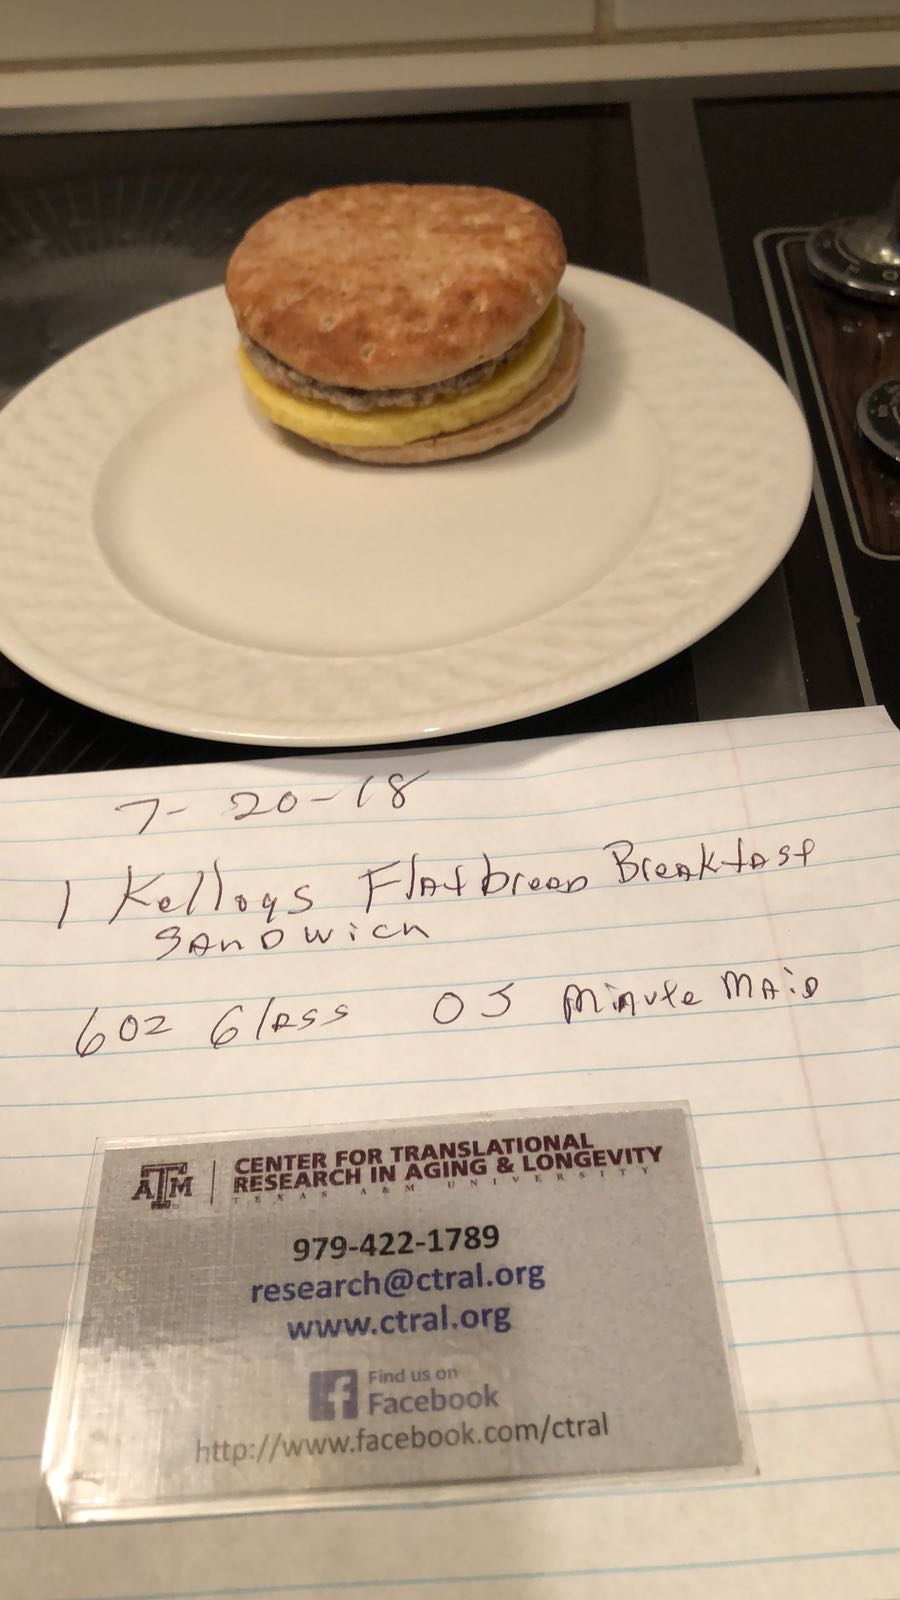 7-20-18
1 Kellogs Flatbread Breakfast
Sandwich
6oz Glass OJ Minute Maid
ATM
CENTER FOR TRANSLATIONAL
RESEARCH IN AGING & LONGEVITY
TEXAS A&M UNIVERSITY
979-422-1789
research@ctral.org
www.ctral.org
Find us on
Facebook
http://www.facebook.com/ctral